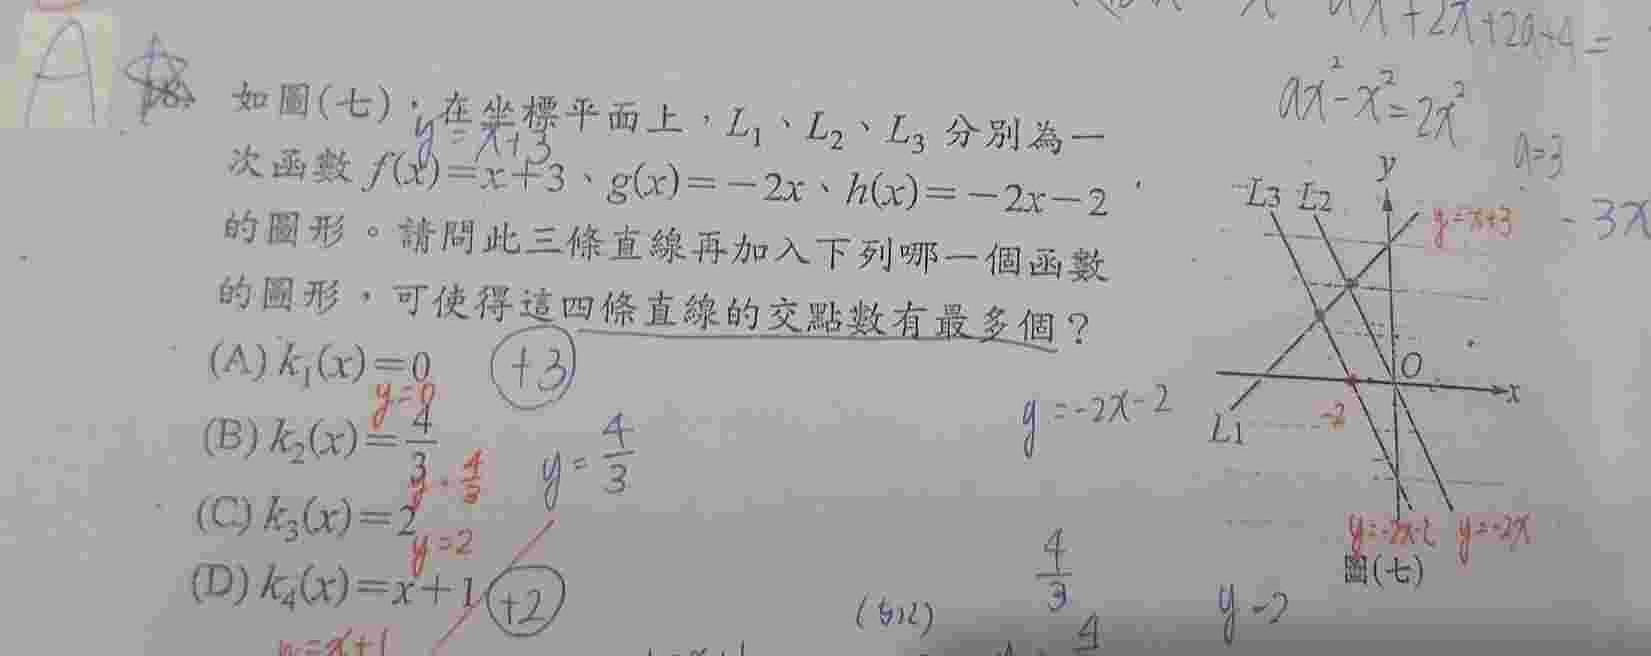 A
18. 如圖(七),在坐標平面上,L₁、L₂、L₃ 分別為一
y=x+3
次函數 f(x)=x+3、g(x)=-2x、h(x)=-2x-2
的圖形。請問此三條直線再加入下列哪一個函數
的圖形,可使得這四條直線的交點數有最多個?
(A) k₁(x)=0
+3
y=0
(B) k₂(x)=4/3
y=4/3
y=4/3
(C) k₃(x)=2
y=2
(D) k₄(x)=x+1
+2
+2x+2a+4=
ax²-x²=2x²
a=3
-3x
L3 L2
y
y=x+3
O
x
-2
L1
y=-2x-2
y=-2x-2 y=-2x
圖(七)
4/3
y=2
4